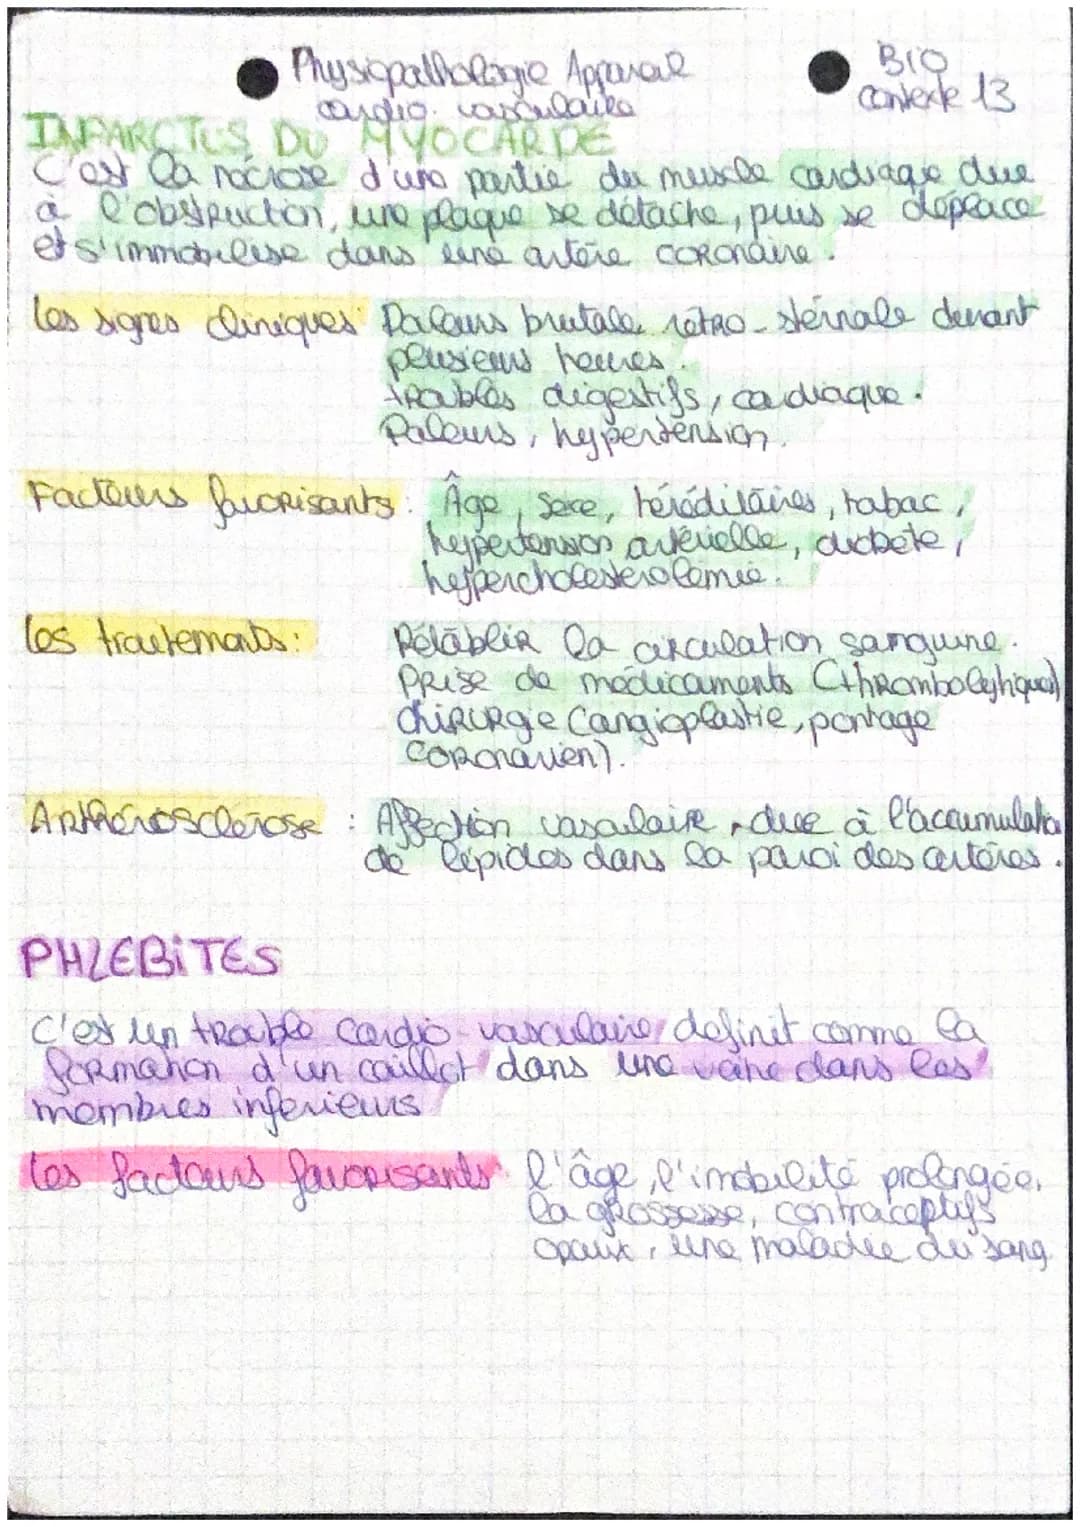 Physiopathologie Appareil
cardio-vasculaire
BIO
contexte 13
INFARCTUS DU MYOCARDE
C'est la nécrose d'une partie du muscle cardiaque due
à l'obstruction, une plaque se détache, puis se déplace
et s'immobilise dans une artère coronaire.
les signes cliniques : Douleurs brutale rétro-sternale durant
plusieurs heures.
troubles digestifs, cardiaque.
Paleurs, hypertension.
Facteurs favorisants : Âge, sexe, héréditaires, tabac,
hypertension artérielle, diabète,
hypercholesterolémie.
les traitements : Rétablir la circulation sanguine.
Prise de médicaments (thrombolytiques)
chirurgie (angioplastie, pontage
coronarien).
Arthérosclérose : Affection vasculaire, due à l'accumulation
de lipides dans la paroi des artères.
PHLEBITES
C'est un trouble cardio-vasculaire, définit comme la
formation d'un caillot dans une veine dans les
membres inferieurs
les facteurs favorisants l'âge, l'imobilité prolongée,
la grossesse, contraceptifs
oraux, une maladie du sang.